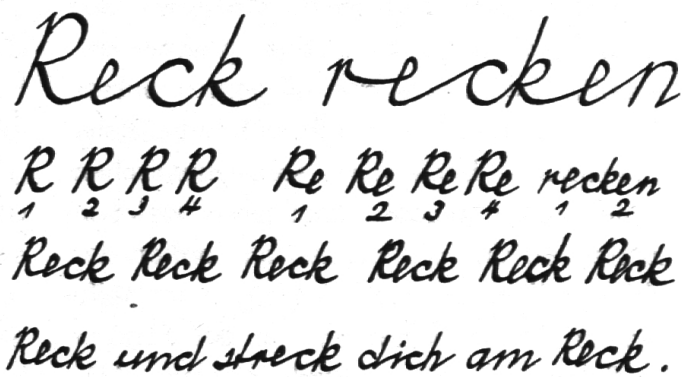 Reck recken
R R R R Re Re Re Re recken
1 2 3 4 1 2 3 4 1 2
Reck Reck Reck Reck Reck Reck
Reck und streck dich am Reck.